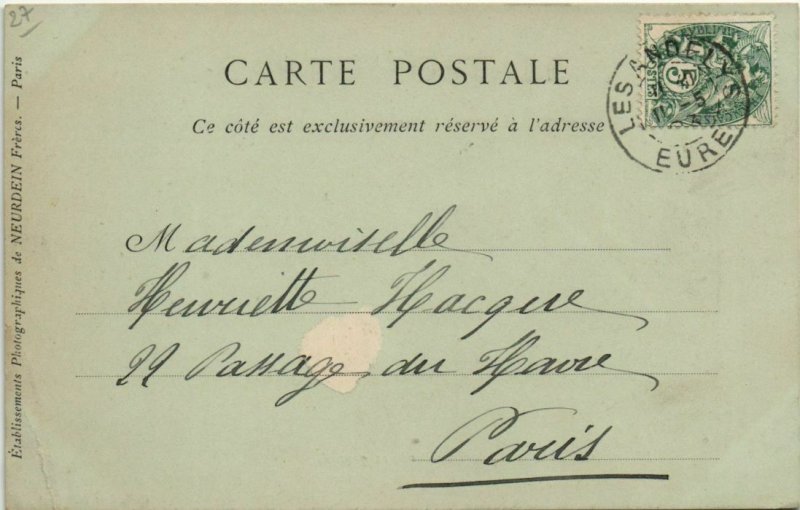 27
CARTE POSTALE
Ce côté est exclusivement réservé à l'adresse
LES ANDELYS
EURE
Mademoiselle
Henriette Hacque
22 Passage du Havre
Paris
Établissements Photographiques de NEURDEIN Frères. — Paris